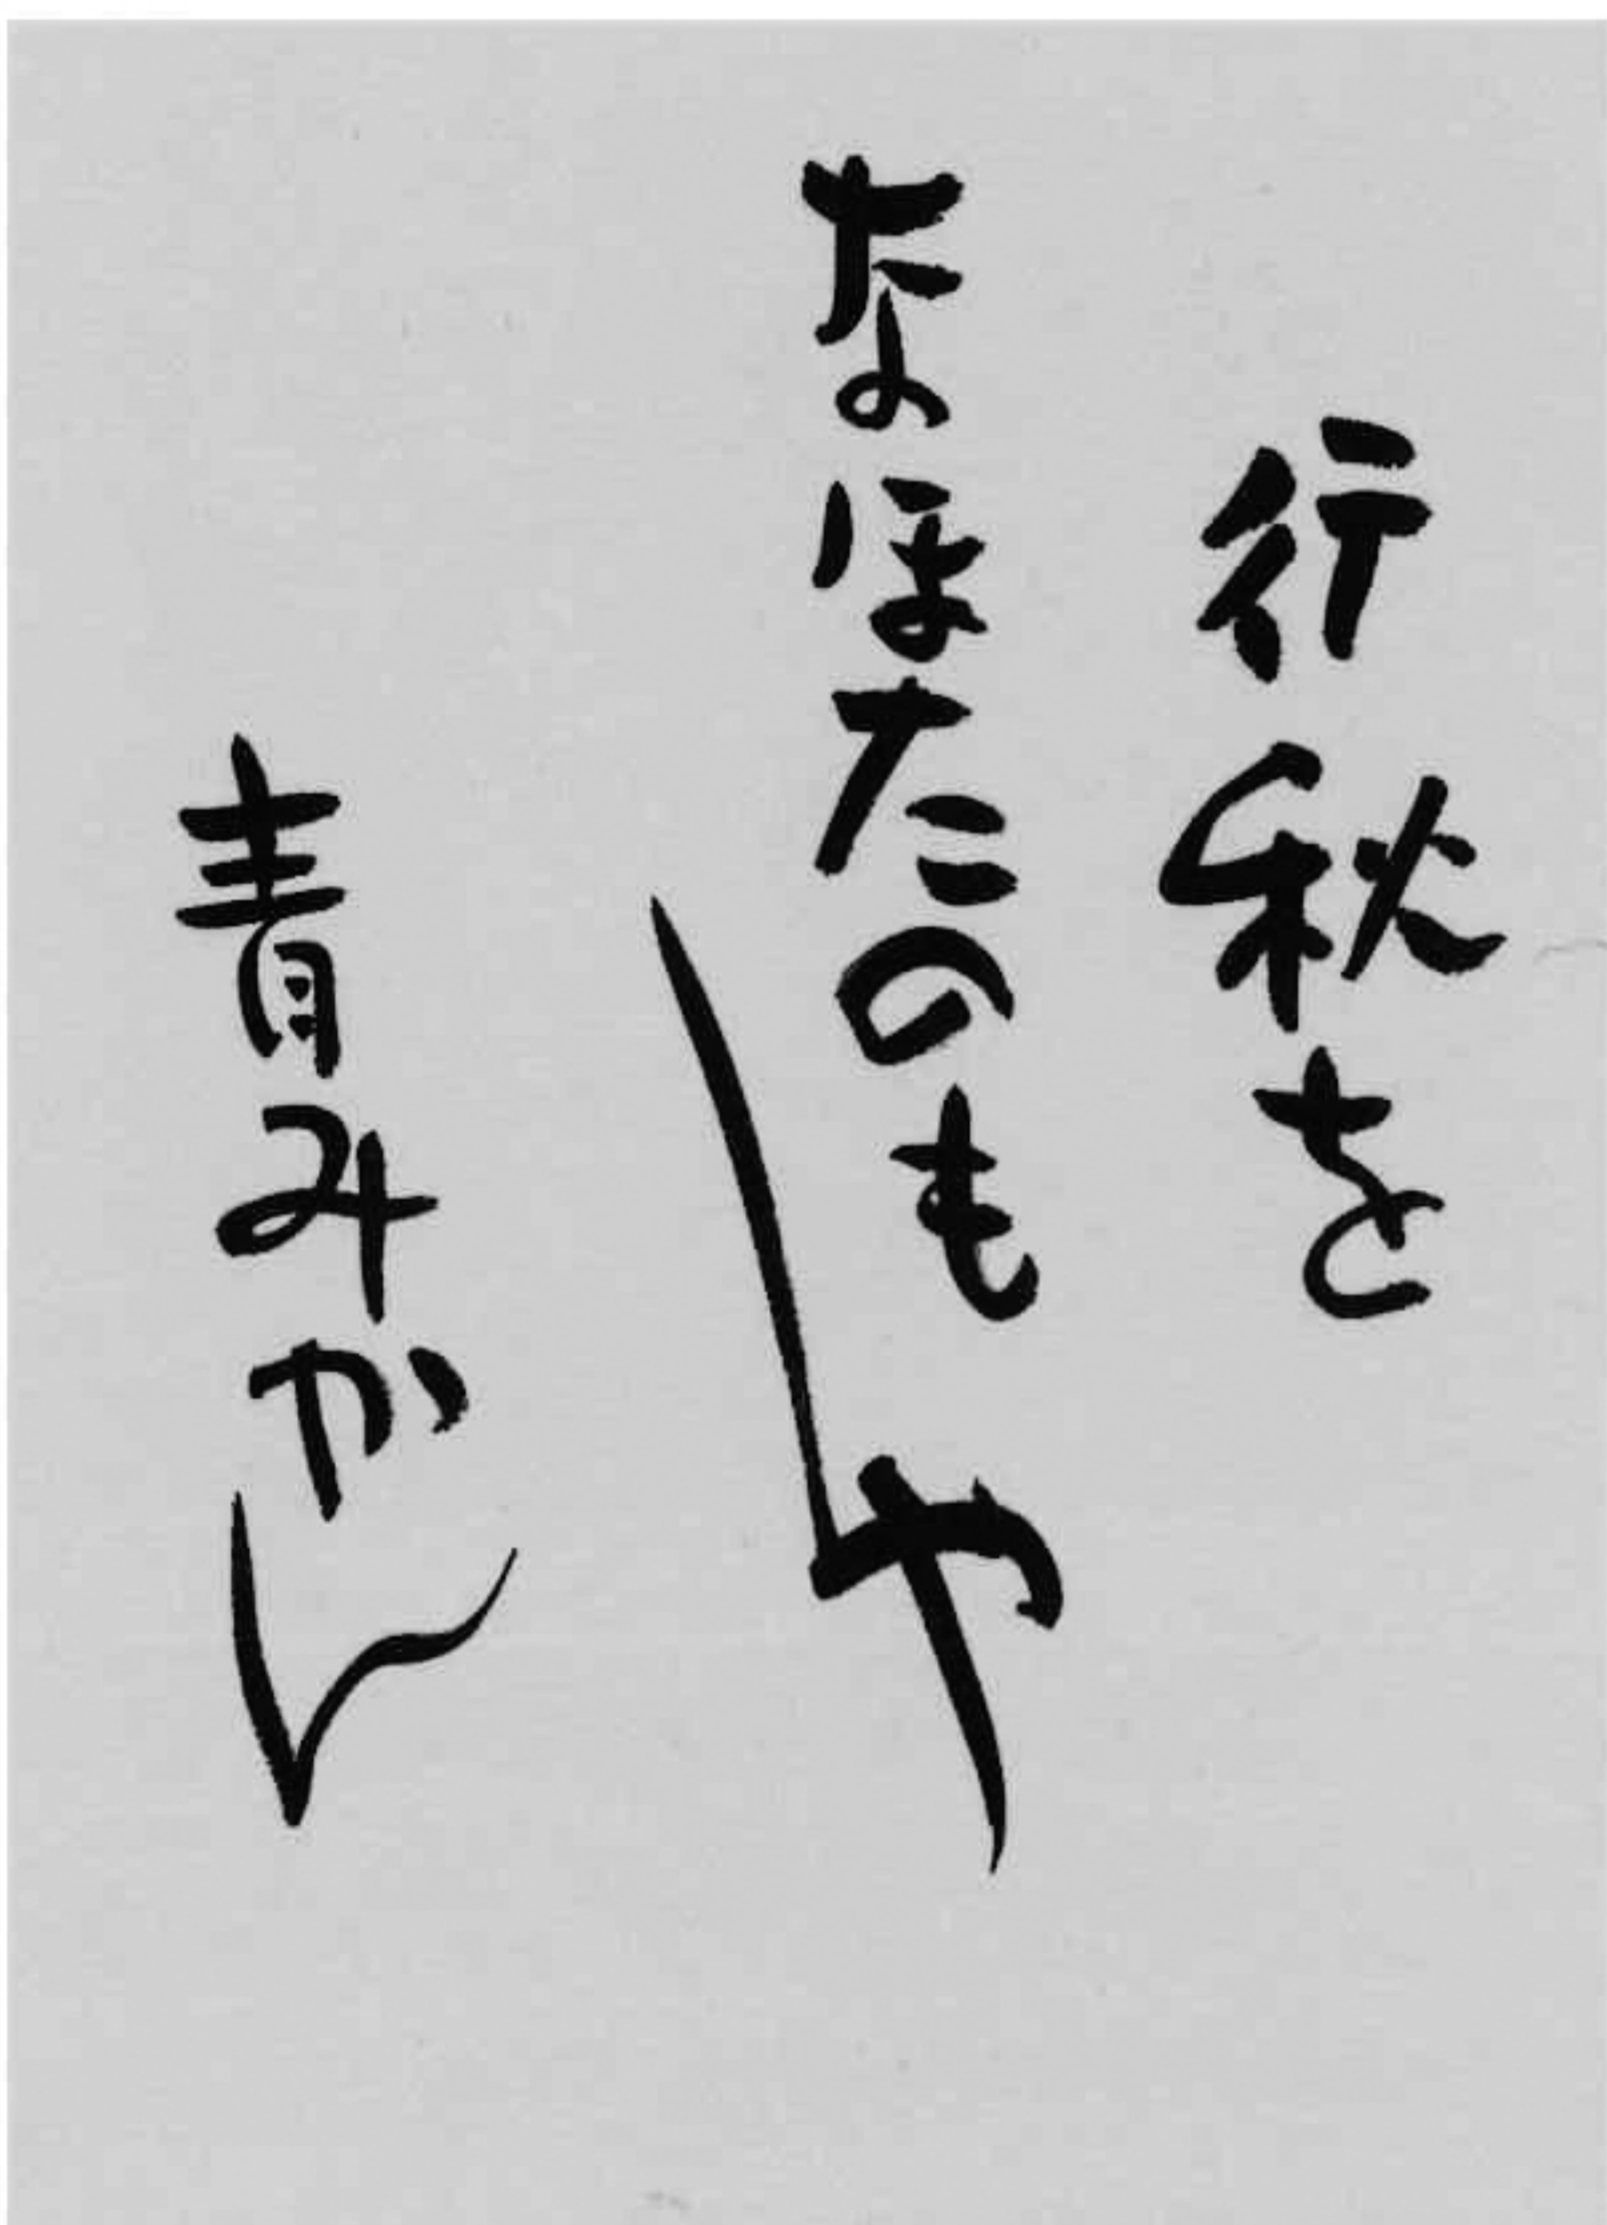 行秋を
なほたのもしや
青みかん